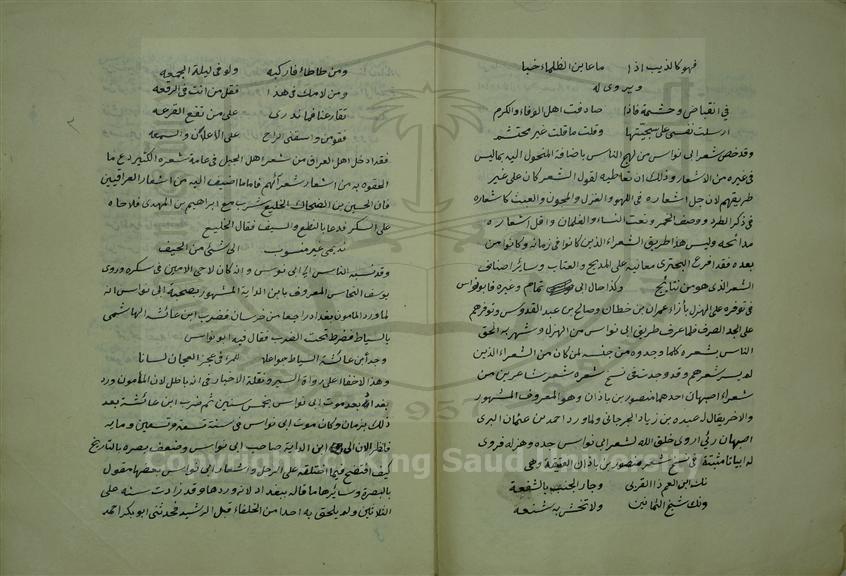 فهو كالذيب اذا ما عاين الظلماء خبا
ويروى له
في انقباض وحشمة فاذا صادفت اهل الوفاء والكرم
ارسلت نفسى على سجيتها وقلت ما قلت غير محتشم
وقد خص شعر ابى نواس من لهج الناس باضافة المنحول اليه بما ليس
في غيره من الاشعار وذلك ان تعاطيه لقول الشعر كان على غير
طريقهم لان جل اشعاره في اللهو والغزل والمجون والعبث كاشعاره
في ذكر الطرد ووصف الخمر ونعت النساء والغلمان واقل اشعاره
مدائحه وليس هذا طريق الشعراء الذين كانوا في زمانه وكانوا من
بعده فقد افرغ البحترى معانيه على المديح والعتاب وسائر اصناف
الشعر الذى هو من نتائج ولذا حال ابى تمام وغيره فابو نواس
في توفره على الهزل بازاء عمران بن حطان وصالح بن عبد القدوس وتوفرهم
على الجد الصرف فلما عرف طريق ابى نواس من الهزل وشهر به الحق
الناس بشعره كلما وجدوه من جنسه لمن كان من الشعراء الذين
لم يسر شعرهم وقد وجدت في نسخ شعره شعر شاعرين من
شعراء اصبهان احدهما منصور بن باذان وهو المعروف المشهور
والاخر يقال له عبده بن زياد الجرجاني ولما ورد احمد بن عثمان البرى
اصبهان رئي اروى خلق الله لشعر ابى نواس جده وهزله فروى
له ابياتا مثبتة في نسخ شعر منصور بن باذان العفيفة وهى
نك ابن العم ذا القربى وجار الجنب بالشفعة
ونك شيخ الثمانين ولا تخش به شنعه
ومن طاطاء فاركبه ولو في ليلة الجمعه
ومن لامك في هذا فقل من انت في الرقعه
تقارعنا فما ندرى على من تقع القرعه
فقومن واسقنى الراح على الاعلان والسمعه
فقد ادخل اهل العراق من شعر اهل الجبل في عامة شعره الكثير دع ما
الحقوه به من اشعار شعرائهم فاما ما اضيف اليه من اشعار العراقيين
فان الحسين بن الضحاك الخليع شرب مع ابراهيم بن المهدى فلاحاه
على السكر فدعا بالنطع والسيف فقال الخليع
نديمى غير منسوب الى شئ من الحيف
وقد نسبه الناس الى ابى نواس وانه كان لاحى الامين في سكره وروى
يوسف النحاس المعروف بابن الداية المشهور بصحبة ابى نواس انه
لما ورد المامون بغداد راجعا من خرسان فضرب ابن عائشة الهاشمى
بالسياط فضرط تحت الضرب فقال فيه ابو نواس
وجد ابن عائشة السياط مواعظا للمرء في عجز العجان لسانا
وهذا لا خفاء على رواة السير ونقلة الاخبار في انه باطل لان المأمون ورد
بغداد بعد موت ابى نواس بخمس سنين ثم ضرب ابن عائشة بعد
ذلك بزمان وكان موت ابى نواس في سنة تسعة وتسعين وماية
فانظر الان الى ابن الداية صاحب ابى نواس وضعف بصره بالتاريخ
كيف افتضح فيما اختلقه على الرجل واشعار ابى نواس بعضها مقول
بالبصرة وسائرها ما قاله ببغداد لانه وردها وقد زادت سنه على
الثلاثين ولم يلحق به احدا من الخلفاء قبل الرشيد فحدثنى ابو بكر احمد
Copyright © King Saud University
1957